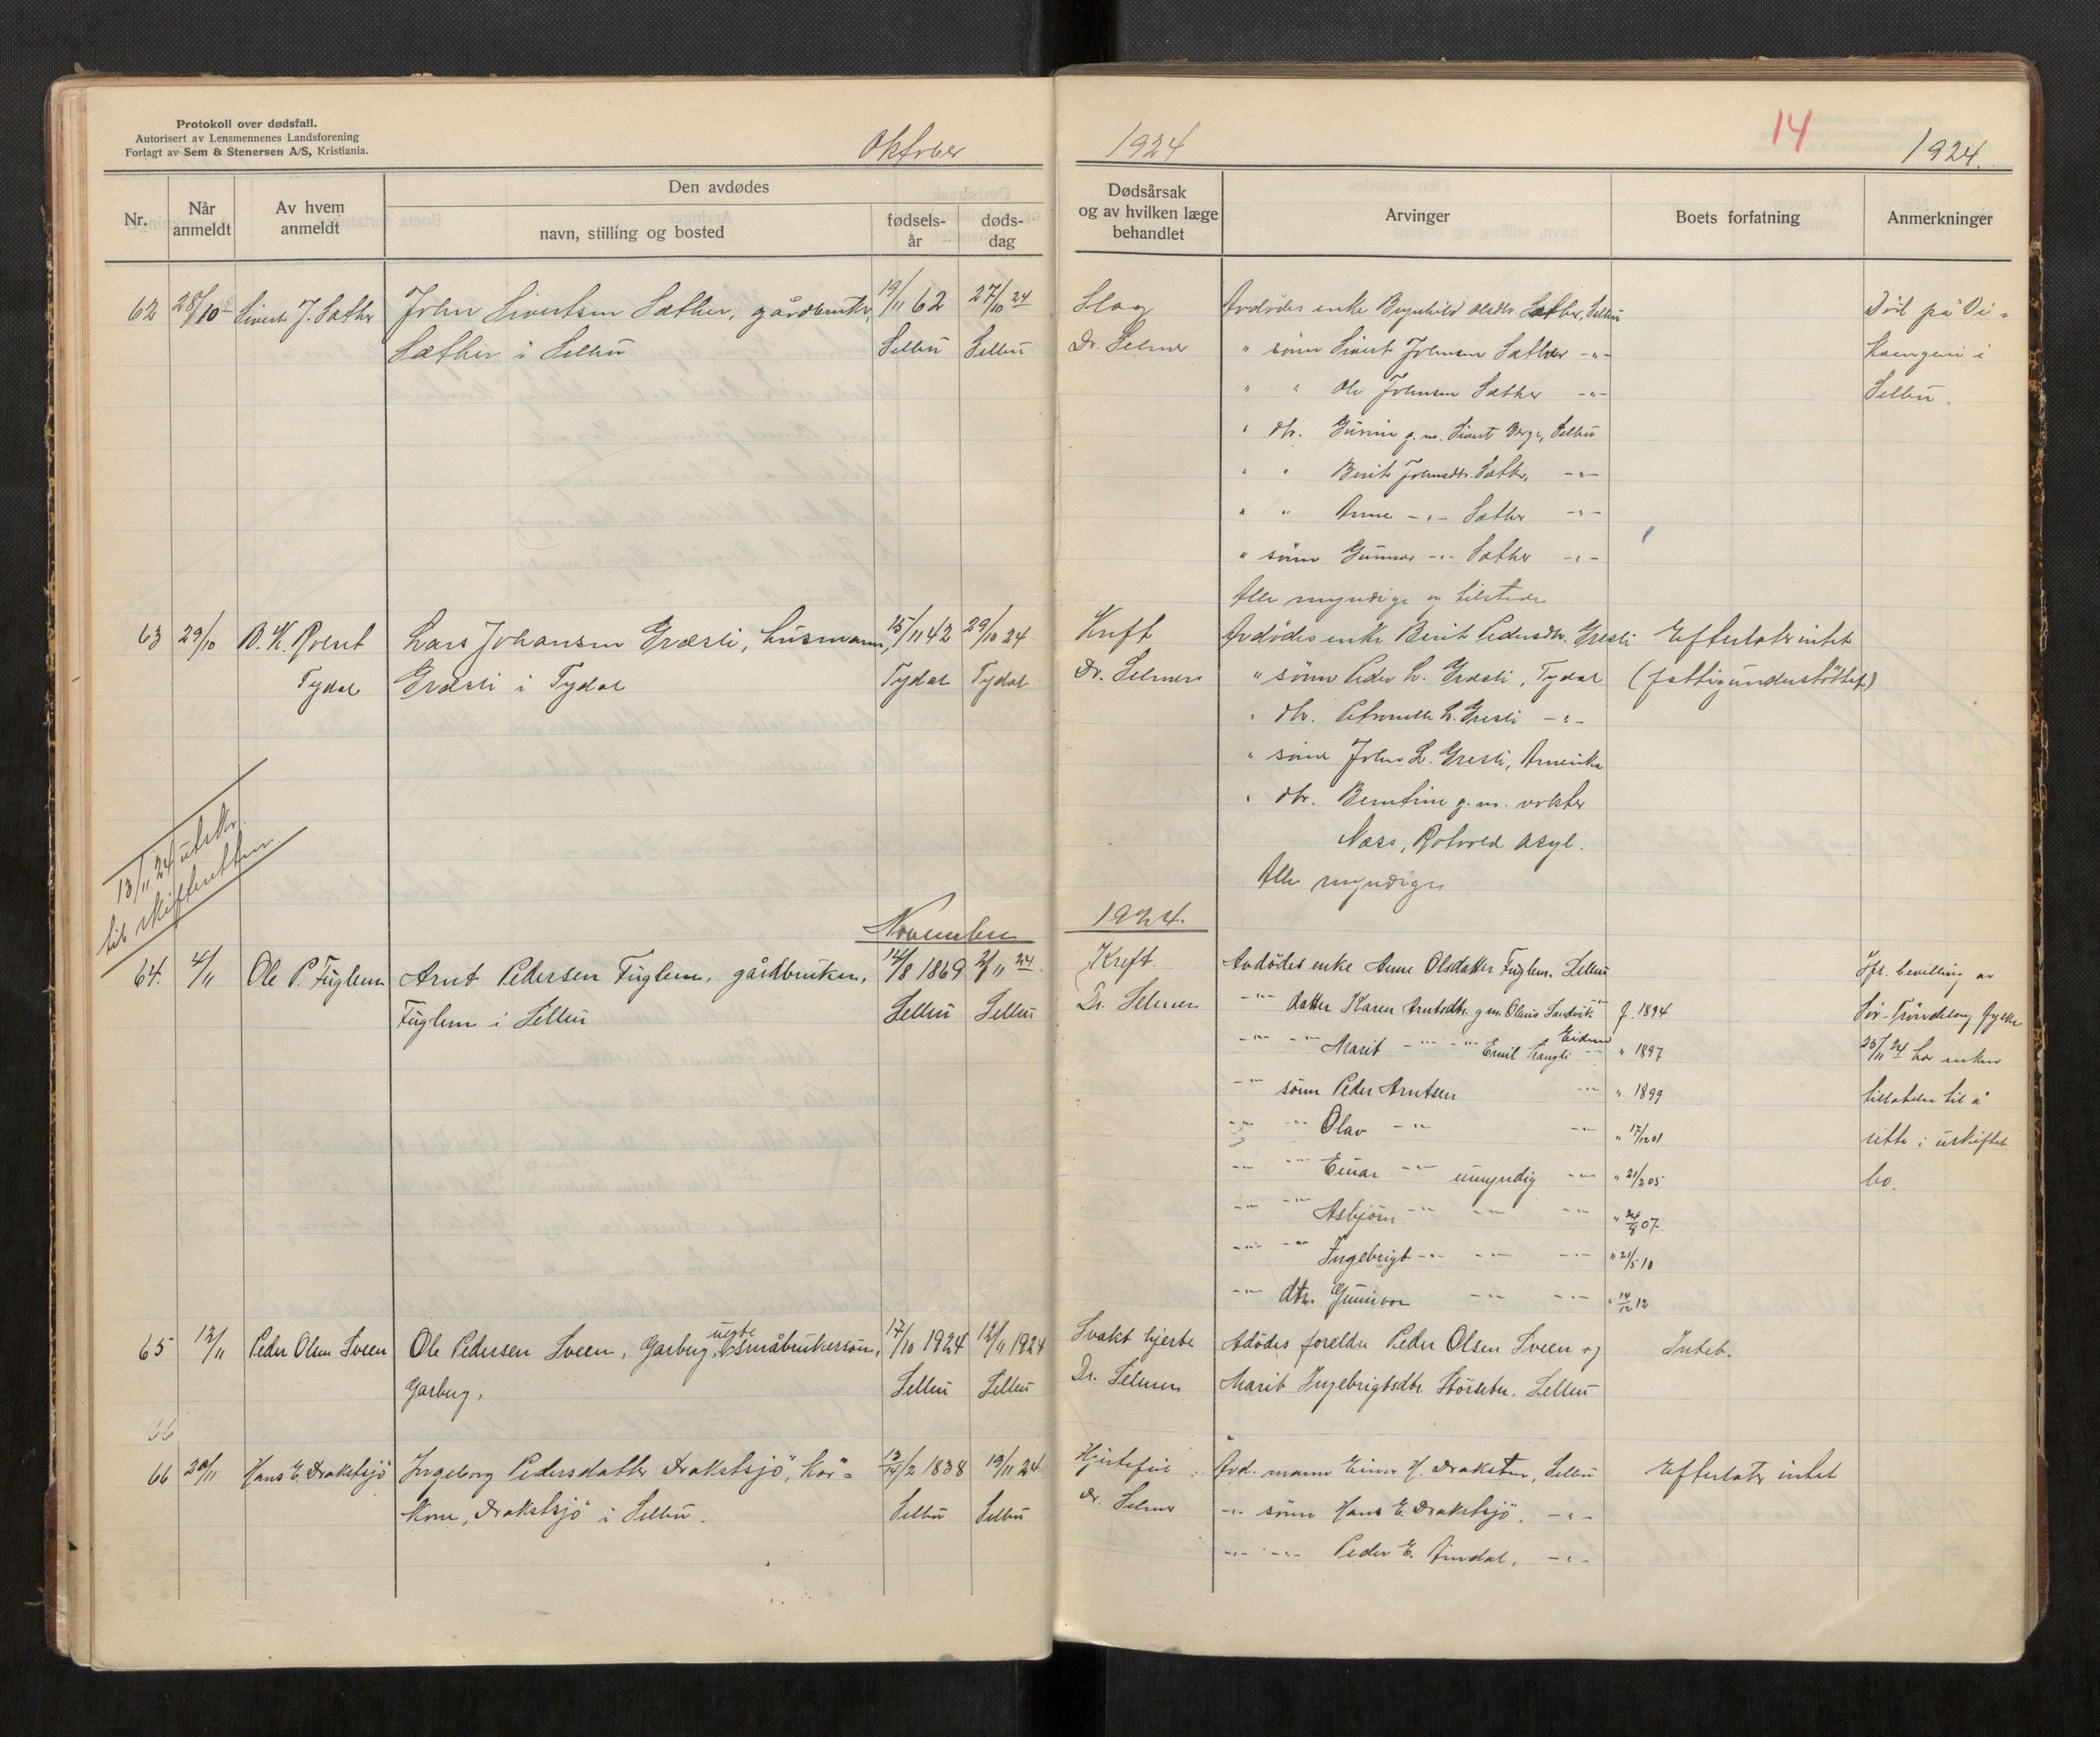 Protokoll over dødsfall.
Autorisert av Lensmennenes Landsforening
Forlagt av Sem & Stenersen A/S, Kristiania.
Oktober
1924
14
1924.
Nr.
Når anmeldt
Av hvem anmeldt
Den avdødes
navn, stilling og bosted
fødsels-år
døds-dag
Dødsårsak og av hvilken læge behandlet
Arvinger
Boets forfatning
Anmerkninger
62 28/10 Sivert J. Sæther John Sivertsen Sæther, gårdbruker, 19/11 62 27/10 24
Sæther i Selbu Selbu Selbu
Slag
Dr. Selmer
Avdødes enke Olsdtr. Sæther, Selbu
" sönn Sivert Johnsen Sæther -"-
" " Ole Johnsen Sæther -"-
" dtr. g.m. Sivert Berge, Selbu
" " Berit Johnsdtr. Sæther, -"-
" " Anne -"- Sæther -"-
" sönn Gunnar -"- Sæther -"-
Alle myndige og tilstede
Död på Vi-
kaengen i
Selbu.
63 29/10 Lars Johansen Græsli, husmann, 15/11 42 29/10 24
Tydal Græsli i Tydal Tydal Tydal
Kreft
Dr. Selmer
Avdödes enke Berit Pedersdtr. Græsli
" sönn Peder L. Græsli, Tydal
" dtr. Petronelle L. Græsli -"-
" sönn John L. Græsli, Amerika
" dtr. Berntine g.m. vokter
Næss, Rotvold asyl.
Alle myndige
Efterlater intet
(fattigunderstöttet)
13/11 24 utskr.
til skifteretten.
November
1924.
64. 4/11 Ole P. Fuglem Arnt Pedersen Fuglem, gårdbruker, 14/8 1869 2/11 24
Fuglem i Selbu Selbu Selbu
Kreft.
Dr. Selmer
Avdödes enke Anne Olsdatter Fuglem, Selbu
-"- datter Karen Arntsdtr. g.m. Olaus Sandvik -"- f. 1894
-"- -"- Marit -"- -"- Emil -"- " 1897
-"- sönn Peder Arntsen -"- " 1899
-"- -"- Olav -"- -"- " 17/12 01
-"- -"- Einar -"- umyndig -"- " 21/2 05
-"- -"- Asbjörn -"- -"- -"- " 24/8 07.
-"- -"- Ingebrigt -"- -"- -"- " 21/5 10
-"- dtr. Gunvor -"- -"- " 14/12 12
Ifl. bevilling av
Sör-Tröndelag fylke
25/11 24 har enken
tillatelse til å
sitte i uskiftet
bo.
65 12/11 Peder Olsen Sveen Ole Pedersen Sveen, Garberg, uegte Småbrukersönn, 17/10 1924 12/11 1924
Garberg, Selbu Selbu
Svakt hjerte
Dr. Selmer
Adödes foreldre Peder Olsen Sveen og
Marit Ingebrigtsdtr. Störseter, Selbu
Intet.
66
66 20/11 Hans E. Drakstsjö Ingeborg Pedersdatter Drakstsjö, kår-
kone, Drakstsjö i Selbu. 13/2 1838 19/11 24
Selbu Selbu
Hjertefeil
Dr. Selmer
Avd. mann Einar H. Draksten, Selbu
-"- sönn Hans E. Drakstsjö, -"-
-"- -"- Peder E. -"-
Efterlater intet